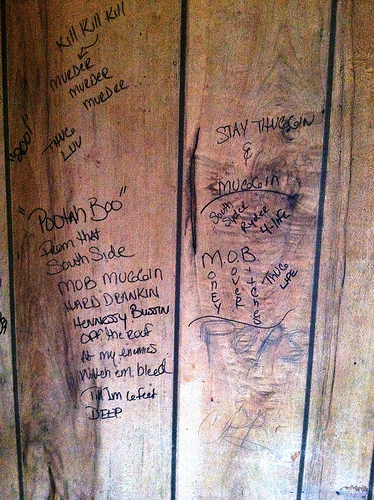 Kill Kill Kill
MURDER
MURDER
MURDER
"200"
THUG
LUV
"Pootah Boo"
From that
South Side
MOB MUGGIN
HARD DRANKIN
HENNESSY BUSSIN
OFF the ROOF
At my enemies
Watch em bleed
Till Im 6 feet
DEEP
STAY THUGGIN
&
MUGGIN
South
Syde
Ryder
4-life
M.O.B.
oney
over
itches
THUG
LIFE